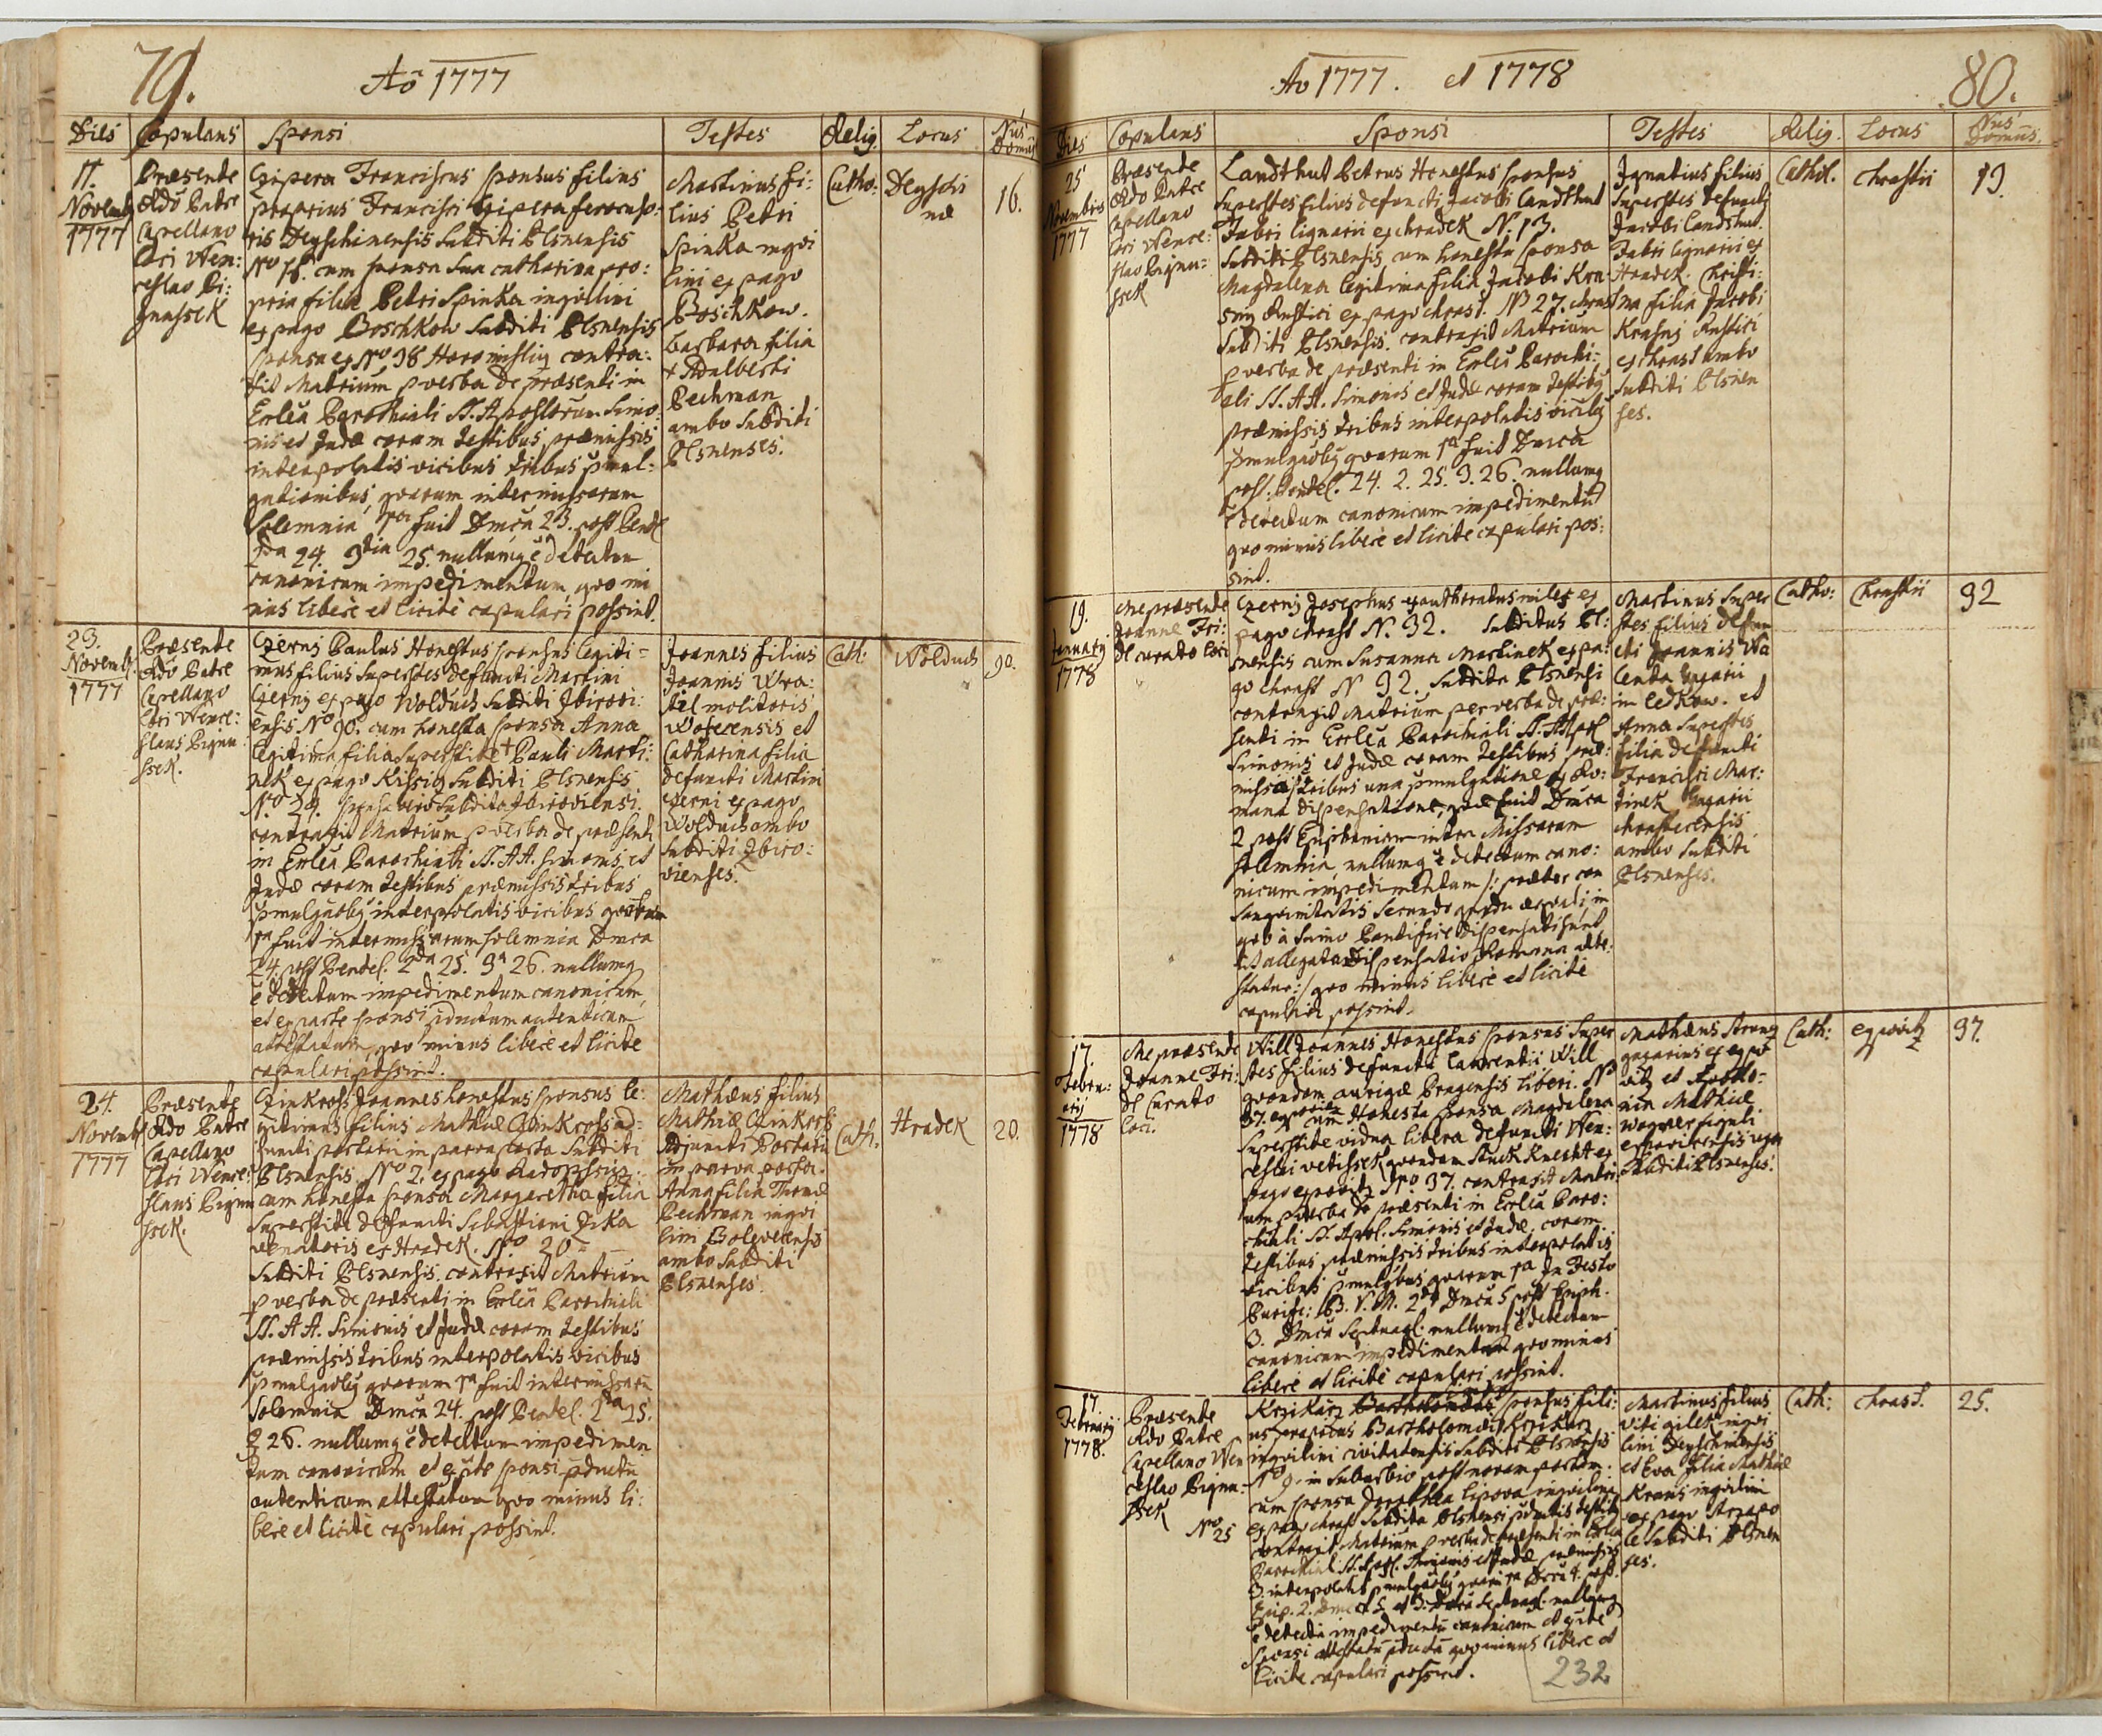 79.
Aõ 1777
Dies Copulans Sponsi Testes Relig. Locus Nus Domus
11.
Novemb
1777
Præsente
Rdo Patre
Capellano
Loci Wen:
ceslao Pi:
gnassek
Franciscus sponsus filius
proprius Francisci
Deyschinensis Subditi Plsnensis
No 16. cum sponsa sua catharina pro:
pria filia Petri Spinka inqvillini
ex pago Boschkow Subditi Plsnensis
sponsa ex No 38 contra:
xit Matrium p verba de præsenti in
Eccleã Parochiali SS. Apostlorum Simo
nis et Judæ coram testibus præmissis
interpolatis vicibus tribus pmul:
gationibus, qvarum inter missarum
Solemnia 1ma fuit Dmcã 23. post Pent
2da 24. 3tia 25. nullumq̃ ẽ detectum
canonicum impedimentum, qvo mi
nus liberè et licitè copulari possint.
Martinus fi:
lius Petri
Spinka inqvi
lini ex pago
Boschkow.
barbara filia
+ Adalberti
Pechman
ambo Subditi
Plsnenses.
Catho:
Deyschi
næ
16.
23.
Novemb.
1777
Præsente
Rdo Patre
Capellano
Loci Wence:
slaus Pigna
ssek.
Czerny Paulus Honestus sponsus legiti-
mus filius Superstes defuncti Martini
Czerny ex pago Wolduch Subditi Zbirovi:
ensis No 90. cum honesta sponsa Anna
legitima filia Superstite + Pauli Marti:
nek ex pago Kissitz Subditi Plsnensis
No 24. sponsa vero Subdita Zbiroviensi.
contraxit Matrium p verba de præsenti
in Eccleã Parochiali SS. AA. Simonis et
Judæ coram testibus præmissis tribus
pmulgaõbq̃ interpolatis vicibus qvarum
1a fuit inter missarum solemnia Dmca
24. post Pentec. 2da 25. 3a 26. nullumq̃
ẽ detectum impedimentum canonicum,
et ex parte sponsi pductum autenticum
attestatum, qvo minus liberè et licite
copulari possint.
Joannes filius
Joannis Wra:
til molitoris
et
Catharina filia
defuncti Martini
Czerni ex pago
Wolduch ambo
Subditi Zbiro:
vienses.
Cath:
Wolduch
90.
24.
Novemb
1777
Præsente
Rdo Patre
Capellano
Loci Wence:
slaus Pigna
ssek.
Joannes honestus sponsus le:
gitimus filius Mathiæ ad:
juncti portarii in parva porta Subditi
Plsnensis No 2. ex pago
cum honesta sponsa Margaretha filia
Superstite defuncti Sebastiani Zika
venatoris ex Hradek. No 20
Subditi Plsnensis. contraxit Matrium
p verba de præsenti in Eccleã Parochiali
SS. AA. Simonis et Judæ coram testibus
præmissis tribus interpolatis vicibus
pmulgaõbq̃ qvarum 1a fuit inter missarũ
Solemnia Dmcã 24. post Pentec. 2da 25.
3 26. nullumq̃ ẽ detectum impedimen
tum canonicum et ex pte sponsi pductũ
autenticum attestatum qvo minus li:
bere et licitè copulari possint.
Mathæus filius
Mathiæ
Adjuncti Portarii
in parva porta.
Anna filia Thomæ
Pechman inqvi
lini
ambo Subditi
Plsnenses.
Cath.
Hradek
20.
80.
Ao 1777. et 1778
Dies Copulans Sponsi Testes Relig. Locus Nus Domus.
25
Novembris
1777
Præsente
Rdo Patre
Capellano
Loci Wence:
slao Pigna:
ssek
Landthut Petrus Honestus sponsus
Superstes filius defuncti Jacobi Landthut
Fabri lignarii ex hradek N. 13.
Subditi Plsnensis cum honesta sponsa
Magdalena legitima filia Jacobi Kra:
sny Rustici ex pago chrast. No 27. chrast
Subditi Plsnensis. contraxit Matrium
p verba de præsenti in Eccleã Parochi:
ali SS. AA. Simonis et Judæ coram testibq̃
præmissis tribus interpolatis vicibq̃
pmulgaõbq̃ qvarum 1a fuit Dmca
post. Pentec. 24. 2. 25. 3. 26. nullumq̃
ẽ detectum canonicum impedimentũ
qvo minus liberè et licite copulari pos:
sint.
Ignatius filius
Superstes defuncti
Jacobi Landthut
Fabri lignarii ex
Hradek. Christi:
na filia Jacobi
Krasny Rustici
ex chrast ambo
Subditi Plsnen
ses.
Cathol.
chrastii
19.
19.
January
1778
Me præsente
Joanne Fri:
dl curato loci
Czerny Josephus exauthoratus miles ex
pago chrast N. 92. Subditus Pl:
snensis cum Susanna Martinek ex pa:
go chrast N 92. Subdita Plsnensi
contraxit Matrium per verba de præ:
senti in Eccleã Parochiali SS. AApl
Simonis et Judæ coram testibus præ:
missis tribus una pmulgatione ex Ro:
mana dispensatione, quæ fuit Dmca
2 post Epiphaniam inter Missarum
solemnia, nullumq̃ ẽ detectum cano:
nicum impedimentum /: præter con
sangvinitatis secundo gradu æqvali, in
qvo à Sumo Pontifice dispensati sunt
ut allegata Dispensatio Romana atte:
statur :/ qvo minus liberè et licitè
copulari possint.
Martinus Super
stes filius defun
cti Joannis Wa
lenta
in Ledkow. et
Anna Superstes
filia defuncti
Francisci Mar:
tinek
chrastecensis
ambo Subditi
Plsnenses.
Catho:
Chrastii
92
17.
Febru:
arij
1778
Me præsente
Joanne Fri:
dl Curato
loci.
Will Joannes Honestus sponsus Super
stes filius defuncti Laurentii Will
qvondam aurigæ Pragensis liberi. No
37. cum Honesta sponsa Magdalena
Superstite vidua libera defuncti Wen:
ceslai vetissek qvondam Knecht ex
pago No 37. contraxit Matri:
um p verba de præsenti in Eccleã Paro:
chiali SS. Apol. Simonis et Judæ, coram
testibus præmissis tribus interpolatis
vicibus pmulgbus qvarum 1a in Festo
Purific: B. V. M. 2da Dmcã 5 post Epiph.
3. Dmcã Septuagl. nullumq̃ ẽ detectum
canonicum impedimentum qvo minus
liberè et licitè copulari possint.
Mathæus
et
nia Mathiæ
Wogner figuli
Subditi Plsnenses.
Cath:
37.
17.
February
1778.
Præsente
Rdo Patre
Capellano Wen
ceslao Pigna:
ssek
No
25
Krzikacz Bartholomæus sponsus fili:
us proprius Bartholomæi Krzikacz
inqvilini civitatensis Subditi Plsnensis
No 9. in Suburbio post novam portam.
cum sponsa Dorothea lipova inqvilina
ex pago chrast Subdita Plsnensi
contraxit Matrium p verba de præsenti in Eccleã
Parochiali SS. Apl. Simonis et Judæ præmissis
3 interpolatis pmulgaõbq̃ qvarum 1a Dmcã 4. post
Epip. 2. Dmca 5. et 3. Dmca Septuagl. nullumq̃
ẽ detectũ impedimentũ canonicum et ex pte
Sponsi attestatũ pductũ qvo minus libere et
licite copulari possint.
Martinus filius
Viti inqvi
lini Deyschinensis
et Eva filia Mathiæ
Kraus inqvilini
ex pago
Subditi Plsnen
ses.
Cath:
chrast.
25.
232